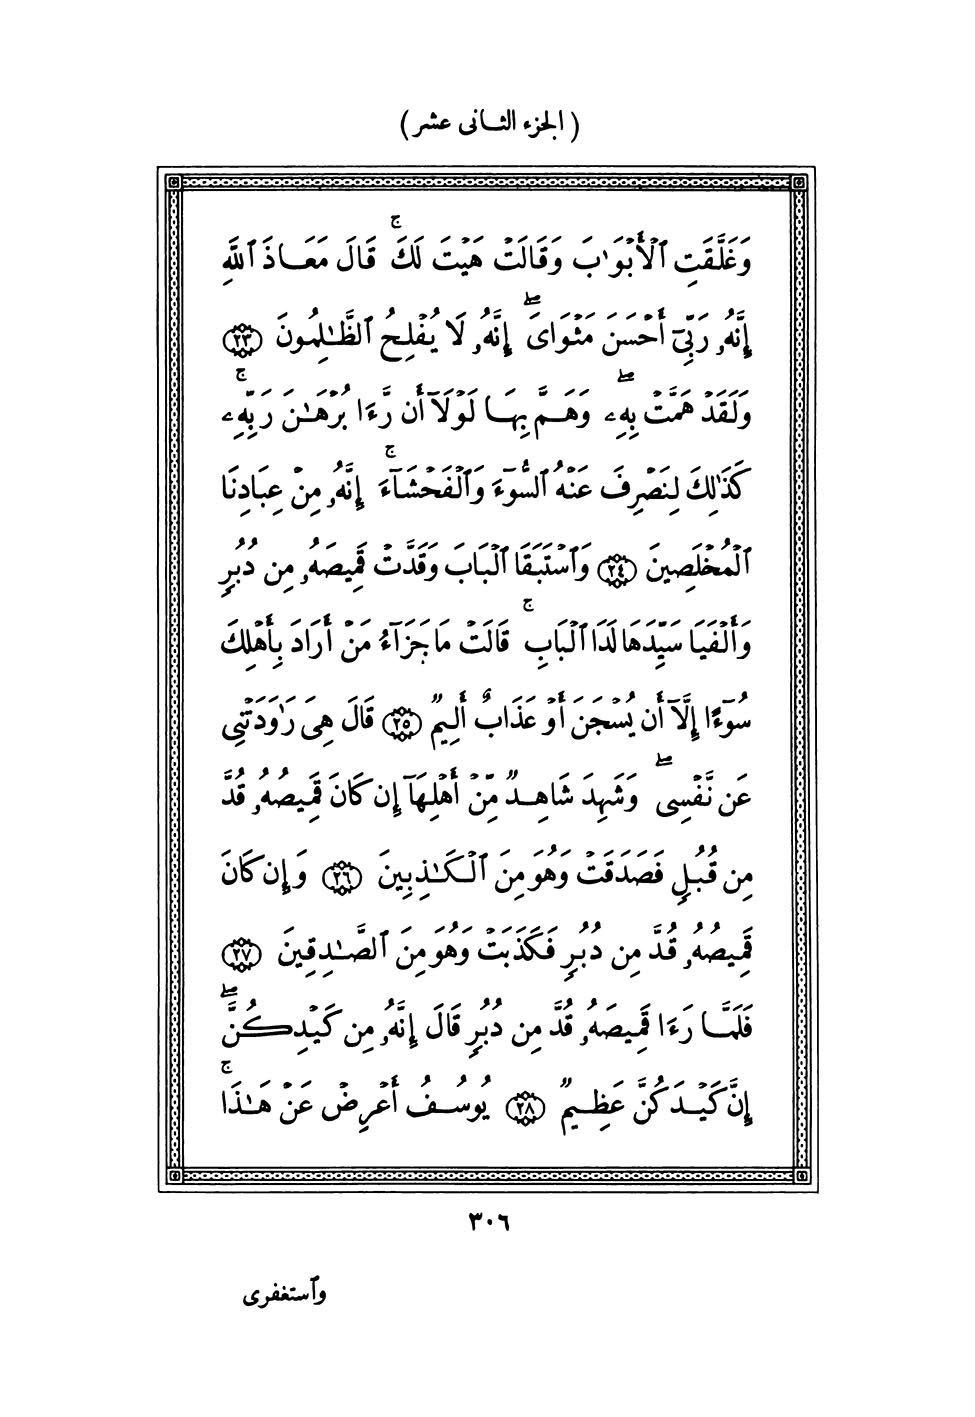 ( الجزء الثانى عشر )
وَغَلَّقَتِ ٱلْأَبْوَٰبَ وَقَالَتْ هَيْتَ لَكَ ۚ قَالَ مَعَاذَ ٱللَّهِ
إِنَّهُۥ رَبِّىٓ أَحْسَنَ مَثْوَاىَ ۖ إِنَّهُۥ لَا يُفْلِحُ ٱلظَّٰلِمُونَ ٢٣
وَلَقَدْ هَمَّتْ بِهِۦ ۖ وَهَمَّ بِهَا لَوْلَآ أَن رَّءَا بُرْهَٰنَ رَبِّهِۦ ۚ
كَذَٰلِكَ لِنَصْرِفَ عَنْهُ ٱلسُّوٓءَ وَٱلْفَحْشَآءَ ۚ إِنَّهُۥ مِنْ عِبَادِنَا
ٱلْمُخْلَصِينَ ٢٤ وَٱسْتَبَقَا ٱلْبَابَ وَقَدَّتْ قَمِيصَهُۥ مِن دُبُرٍ
وَأَلْفَيَا سَيِّدَهَا لَدَا ٱلْبَابِ ۚ قَالَتْ مَا جَزَآءُ مَنْ أَرَادَ بِأَهْلِكَ
سُوٓءًا إِلَّآ أَن يُسْجَنَ أَوْ عَذَابٌ أَلِيمٌ ٢٥ قَالَ هِىَ رَٰوَدَتْنِى
عَن نَّفْسِى ۖ وَشَهِدَ شَاهِدٌ مِّنْ أَهْلِهَآ إِن كَانَ قَمِيصُهُۥ قُدَّ
مِن قُبُلٍ فَصَدَقَتْ وَهُوَ مِنَ ٱلْكَٰذِبِينَ ٢٦ وَإِن كَانَ
قَمِيصُهُۥ قُدَّ مِن دُبُرٍ فَكَذَبَتْ وَهُوَ مِنَ ٱلصَّٰدِقِينَ ٢٧
فَلَمَّا رَءَا قَمِيصَهُۥ قُدَّ مِن دُبُرٍ قَالَ إِنَّهُۥ مِن كَيْدِكُنَّ ۖ
إِنَّ كَيْدَكُنَّ عَظِيمٌ ٢٨ يُوسُفُ أَعْرِضْ عَنْ هَٰذَا ۚ
٣٠٦
وٱستغفرى